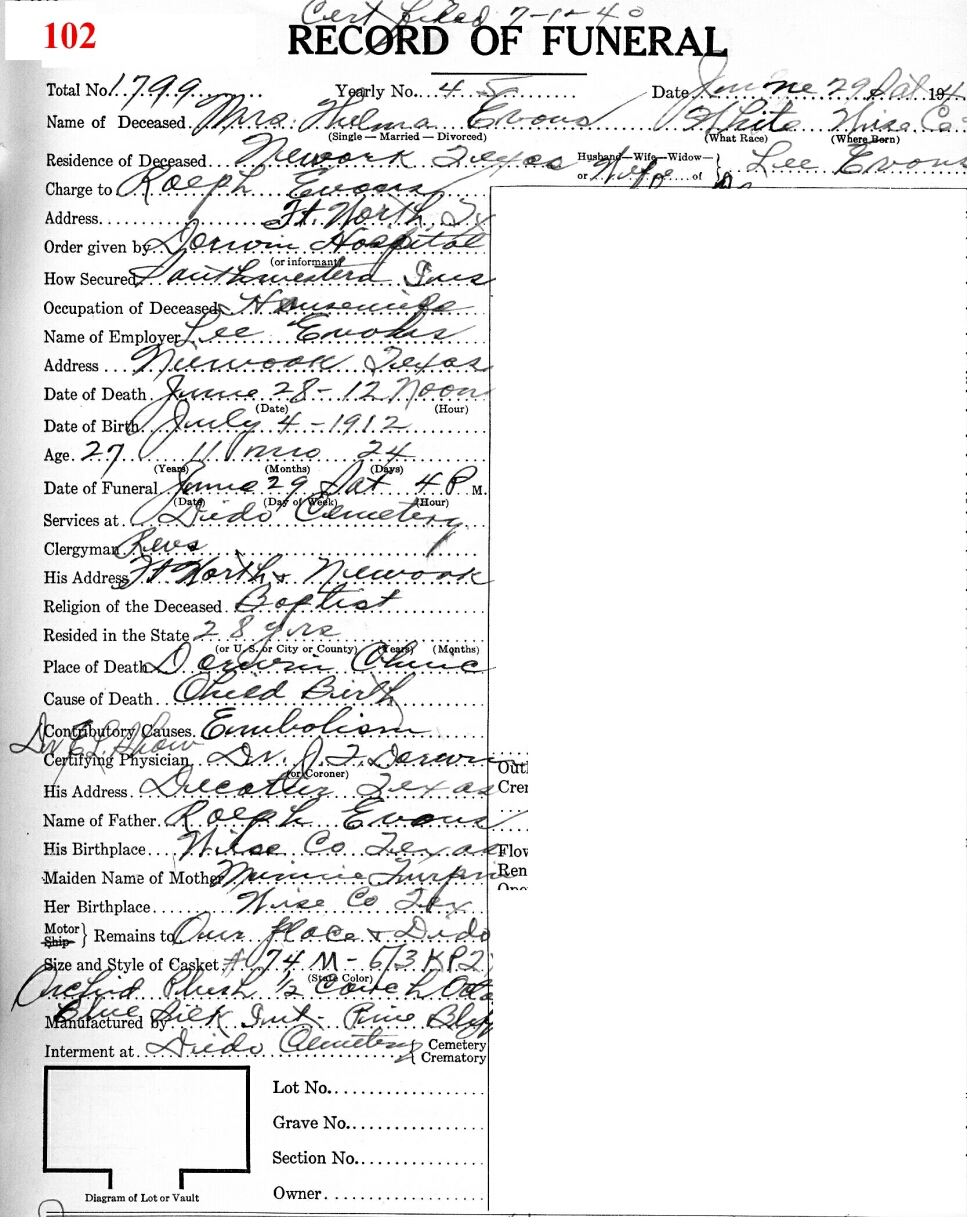 Cert filed 7-1-40
102
RECORD OF FUNERAL
Total No. 1799 Yearly No. 45 Date June 29 Sat 194
Name of Deceased Mrs. Thelma Evans White Wise Co
(Single — Married — Divorced) (What Race) (Where Born)
Residence of Deceased Newark Texas Husband—Wife—Widow— or Wife of } Lee Evans
Charge to Ralph Evans
Address Ft. Worth Tx
Order given by Hospital
(or informant)
How Secured Southwestern Ins
Occupation of Deceased Housewife
Name of Employer Lee Evans
Address Newark Texas
Date of Death June 28 - 12 Noon
(Date) (Hour)
Date of Birth July 4 - 1912
Age 27 11 mo 24
(Years) (Months) (Days)
Date of Funeral June 29 Sat 4 P M.
(Date) (Day of Week) (Hour)
Services at Dido Cemetery
Clergyman Revs
His Address Ft Worth & Newark
Religion of the Deceased Baptist
Resided in the State 28 yrs
(or U. S. or City or County) (Years) (Months)
Place of Death Clinic
Cause of Death Child Birth
Contributory Causes Embolism
Dr
Certifying Physician Dr. J. T.
(or Coroner)
His Address Decatur Texas
Out
Cre
Name of Father Ralph Evans
His Birthplace Wise Co Texas
Flov
Maiden Name of Mother Minnie
Ren
Her Birthplace Wise Co Tex
Motor Ship } Remains to Our place & Dido
Size and Style of Casket # 74 M - 6/3 KP2
(State Color)
Orchid Plush 1/2 Couch
Blue Silk Int - Pine Bluff
Manufactured by
Interment at Dido Cemetery { Cemetery Crematory
Lot No.
Grave No.
Section No.
Owner
Diagram of Lot or Vault